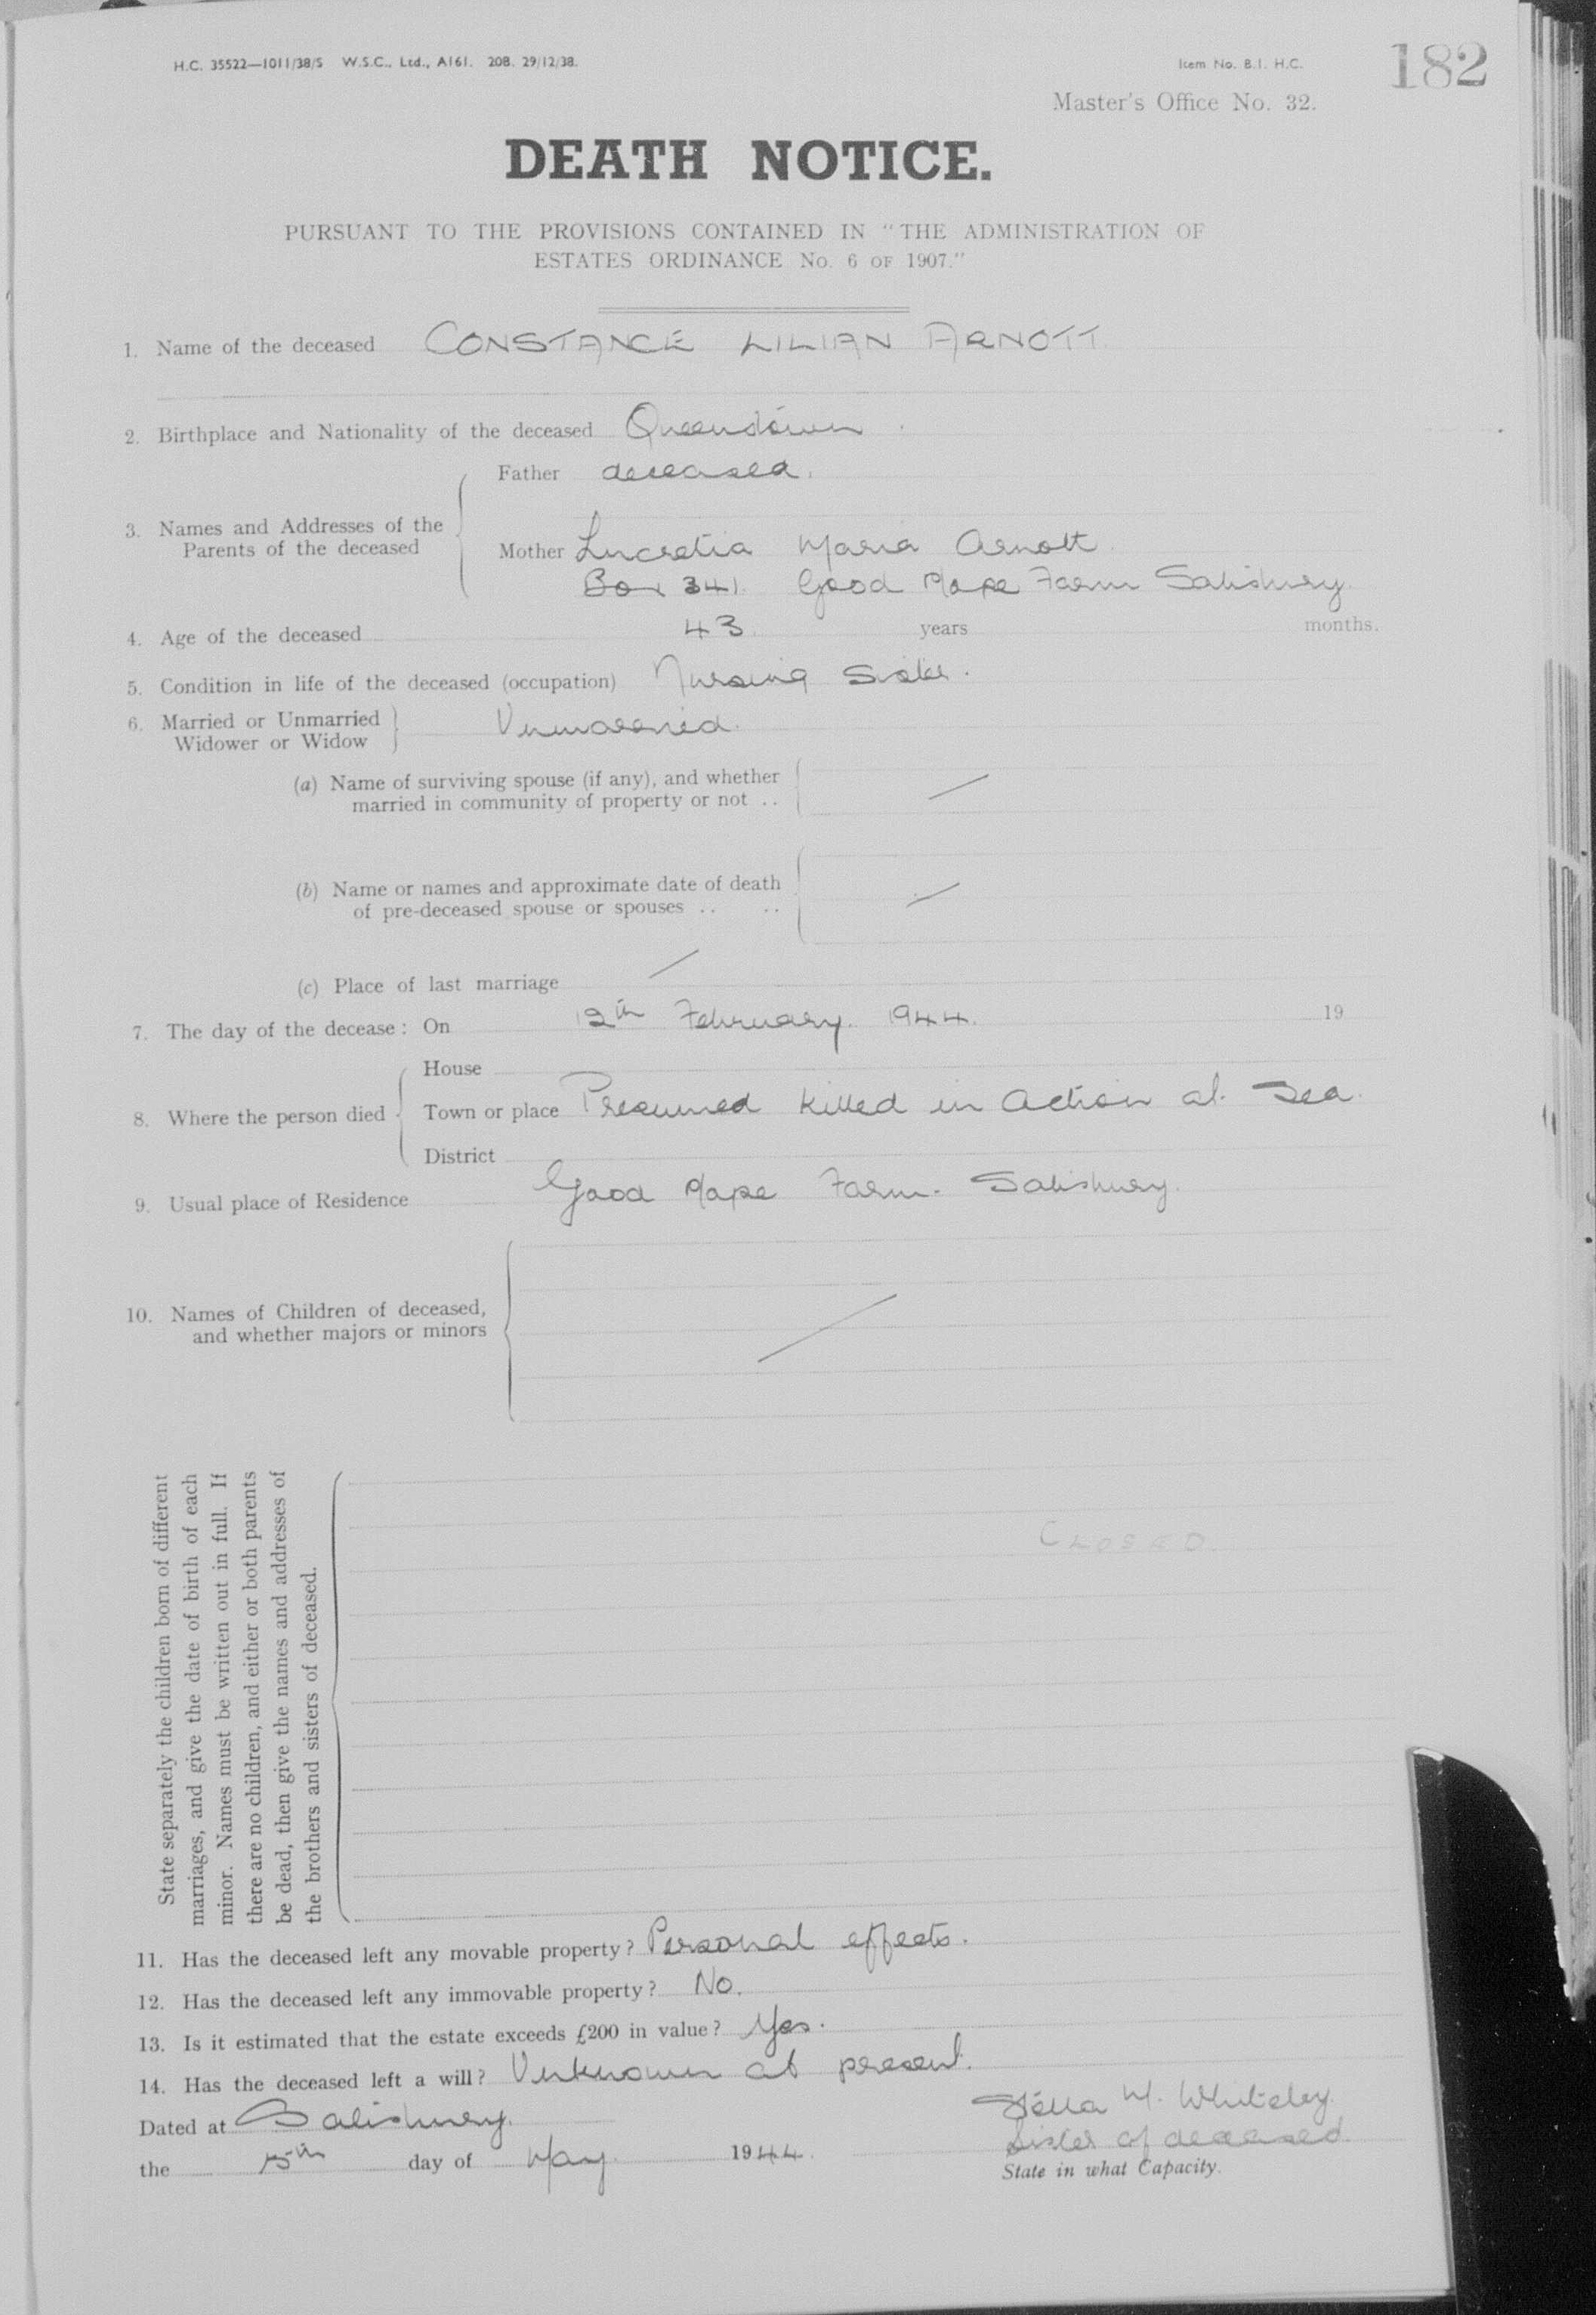 H.C. 35522—1011/38/S W.S.C., Ltd., A161. 20B. 29/12/38.
Item No. B.1. H.C.
182
Master's Office No. 32.
DEATH NOTICE.
PURSUANT TO THE PROVISIONS CONTAINED IN "THE ADMINISTRATION OF
ESTATES ORDINANCE No. 6 OF 1907."
1. Name of the deceased CONSTANCE LILIAN ARNOTT
2. Birthplace and Nationality of the deceased Queenstown.
Father deceased.
3. Names and Addresses of the
Parents of the deceased
Mother Lucretia Maria Arnott
Box 341. Good Hope Farm Salisbury.
4. Age of the deceased 43 years months.
5. Condition in life of the deceased (occupation) Nursing Sister.
6. Married or Unmarried
Widower or Widow
Unmarried.
(a) Name of surviving spouse (if any), and whether
married in community of property or not ..
(b) Name or names and approximate date of death
of pre-deceased spouse or spouses .. ..
(c) Place of last marriage
7. The day of the decease: On 12th February. 1944. 19
House
8. Where the person died Town or place Presumed killed in Action at Sea.
District
9. Usual place of Residence Good Hope Farm. Salisbury.
10. Names of Children of deceased,
and whether majors or minors
State separately the children born of different
marriages, and give the date of birth of each
minor. Names must be written out in full. If
there are no children, and either or both parents
be dead, then give the names and addresses of
the brothers and sisters of deceased.
CLOSED.
11. Has the deceased left any movable property? Personal effects.
12. Has the deceased left any immovable property? No.
13. Is it estimated that the estate exceeds £200 in value? Yes.
14. Has the deceased left a will? Unknown at present.
Dated at Salisbury.
Stella M. Whiteley.
Sister of deceased
the 15th day of May. 1944.
State in what Capacity.